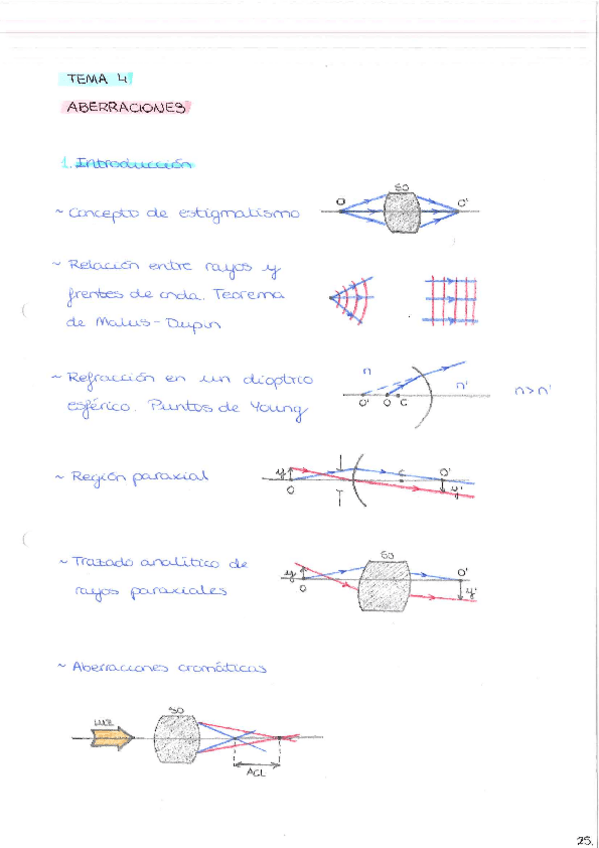 TEMA 4
ABERRACIONES
1. Introducción
~ Concepto de estigmatismo
SO
O
O'
~ Relación entre rayos y
frentes de onda. Teorema
de Malus-Dupin
~ Refracción en un dioptrio
esférico. Puntos de Young
n
n'
n>n'
O' O C
~ Región paraxial
y
O
C
O'
y'
~ Trazado analítico de
rayos paraxiales
SO
y
O
O'
y'
~ Aberraciones cromáticas
LUZ
SO
ACL
25.